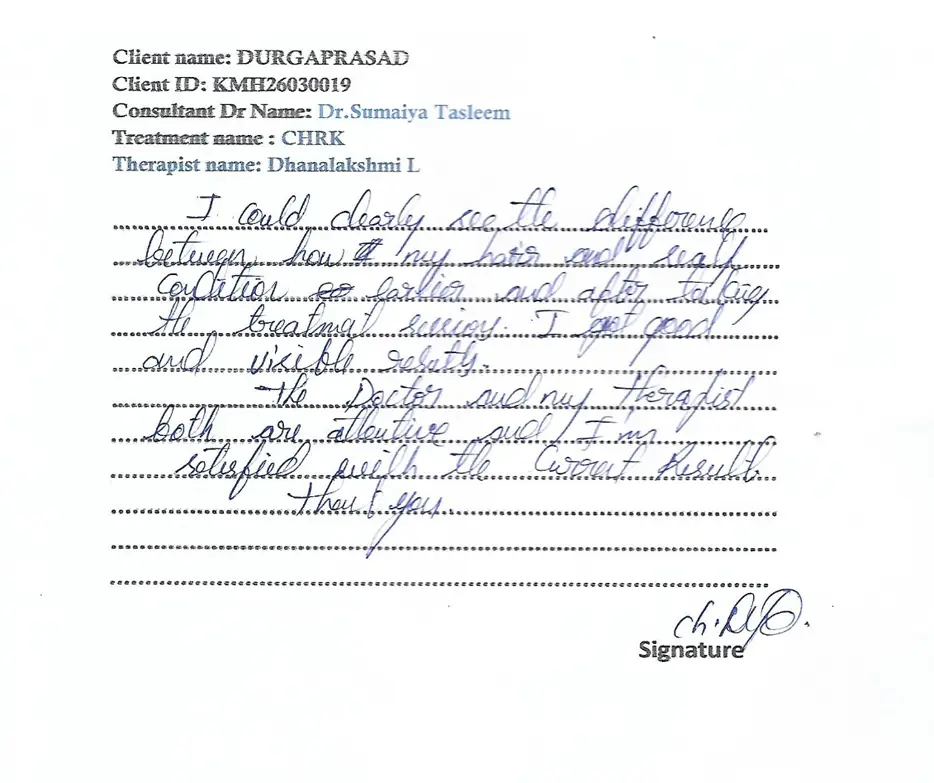 Client name: DURGAPRASAD
Client ID: KMH26030019
Consultant Dr Name: Dr.Sumaiya Tasleem
Treatment name : CHRK
Therapist name: Dhanalakshmi L
I could clearly see the difference
between how my hair and scalp
condition earlier and after taking
the treatmat session. I got good
and visible results.
The Doctor and my therapist
both are attentive and I'm
satisfied with the Current Result
Thank you.
Signature